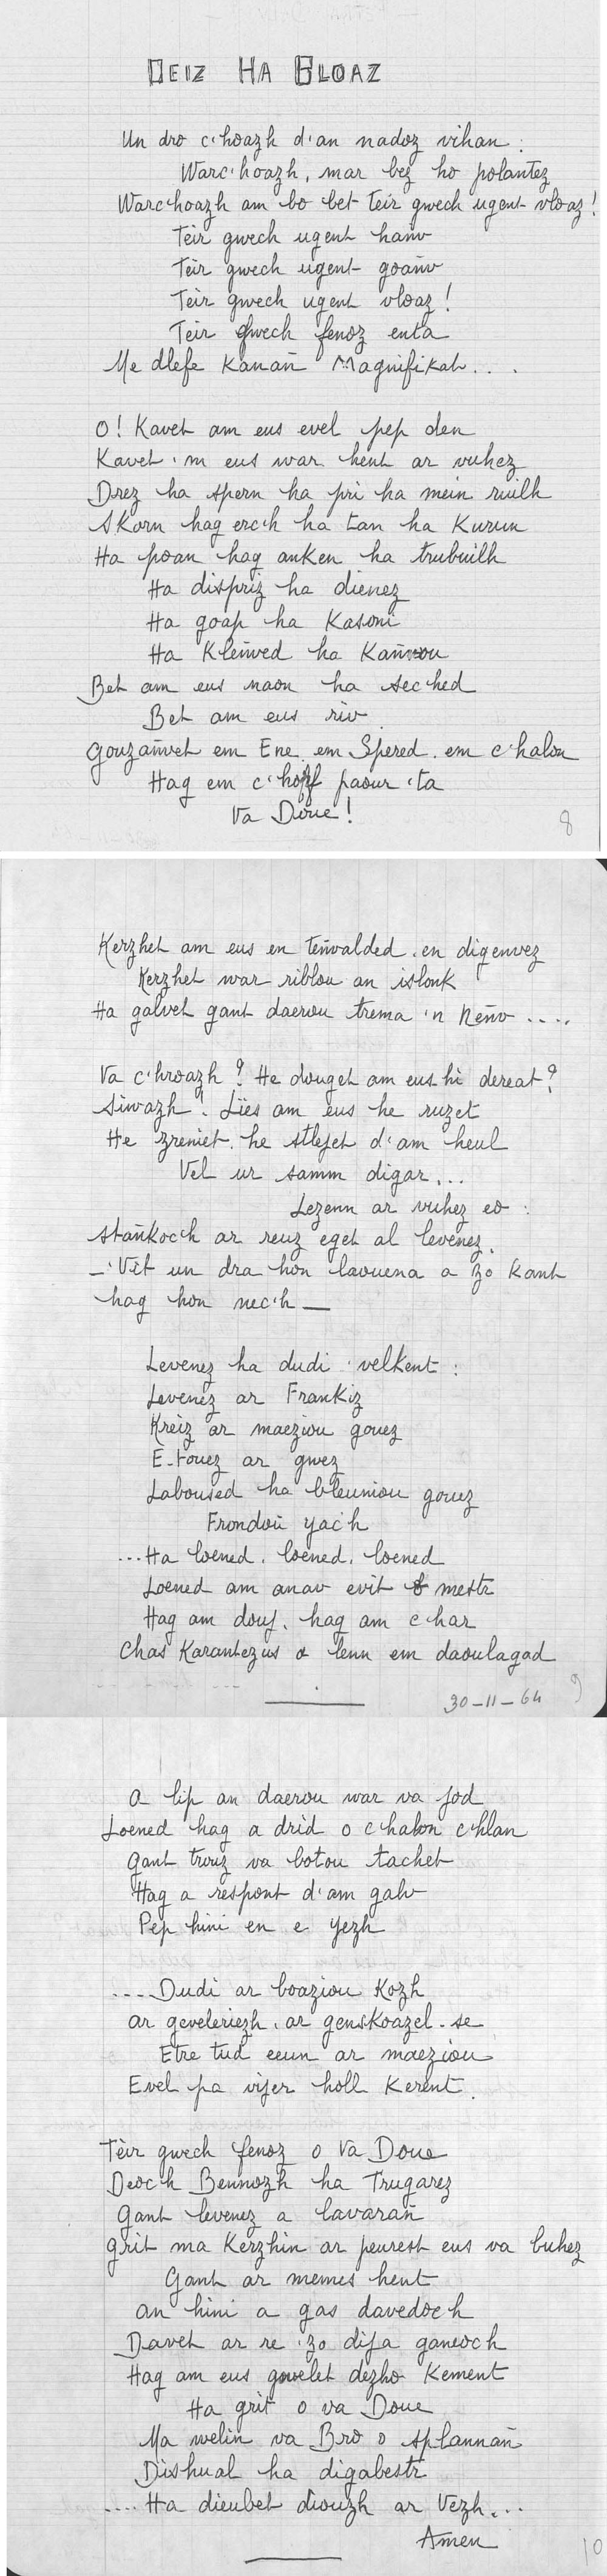 DEIZ HA BLOAZ
Un dro c'hoazh d'an nadoz vihan :
Warc'hoazh, mar bez ho polantez
Warc'hoazh am bo bet teir gwech ugent vloaz !
Teir gwech ugent hañv
Teir gwech ugent goañv
Teir gwech ugent vloaz !
Teir gwech fenoz enta
Me dlefe Kanañ Magnifikat . . .
O ! Kavet am eus evel pep den
Kavet 'm eus war hent ar vuhez
Drez ha spern ha pri ha mein ruilh
Skorn hag erc'h ha tan ha Kurun
Ha poan hag anken ha trubuilh
Ha dispriz ha dienez
Ha goap ha Kasoni
Ha Kleñved ha Kañvou
Bet am eus naon ha sec'hed
Bet am eus riv
Gouzañvet em Ene em Spered em c'halon
Hag em c'hoff paour 'ta
Va Doue !
8
Kerzhet am eus en teñvalded, en digenvez
Kerzhet war riblou an islonk
Ha galvet gant daerou trema 'n Neñv ....
Va c'hroazh ? He douget am eus hi dereat ?
Siwazh ! Lies am eus he ruzet
He zreniet, he stlejet d'am heul
Vel ur samm digar...
Lezenn ar vuhez eo :
Stañkoc'h ar reuz eget al levenez.
– 'Vit un dra hon laouena a zo Kant
hag hon nec'h –
Levenez ha dudi 'velkent :
Levenez ar Frankiz
Kreiz ar maeziou gouez
E-touez ar gwez
Laboused ha bleuniou gouez
Frondoù yac'h
...Ha loened, loened, loened
Loened am anav evit mestr
Hag am douj, hag am c'har
Chas Karantezus a lenn em daoulagad
30-11-64
9
a lip an daerou war va jod
Loened hag a drid o c'halon c'hlan
Gant trouz va botou tachet
Hag a respont d'am galv
Pep hini en e yezh
....Dudi ar boaziou Kozh
ar geveleriezh, ar genskoazel-se
Etre tud eeun ar maeziou
Evel pa vijer holl Kerent.
Teir gwech fenoz o va Doue
Deoc'h Bennozh ha Trugarez
Gant levenez a lavarañ
Grit ma Kerzhin ar peurest eus va buhez
Gant ar memes hent
an hini a gas davedoc'h
Davet ar re 'zo dija ganeoc'h
Hag am eus gouelet dezho Kement
Ha grit o va Doue
Ma welin va Bro o splannañ
Dishual ha digabestr
.... Ha dieubet diouzh ar Vezh...
Amen
10